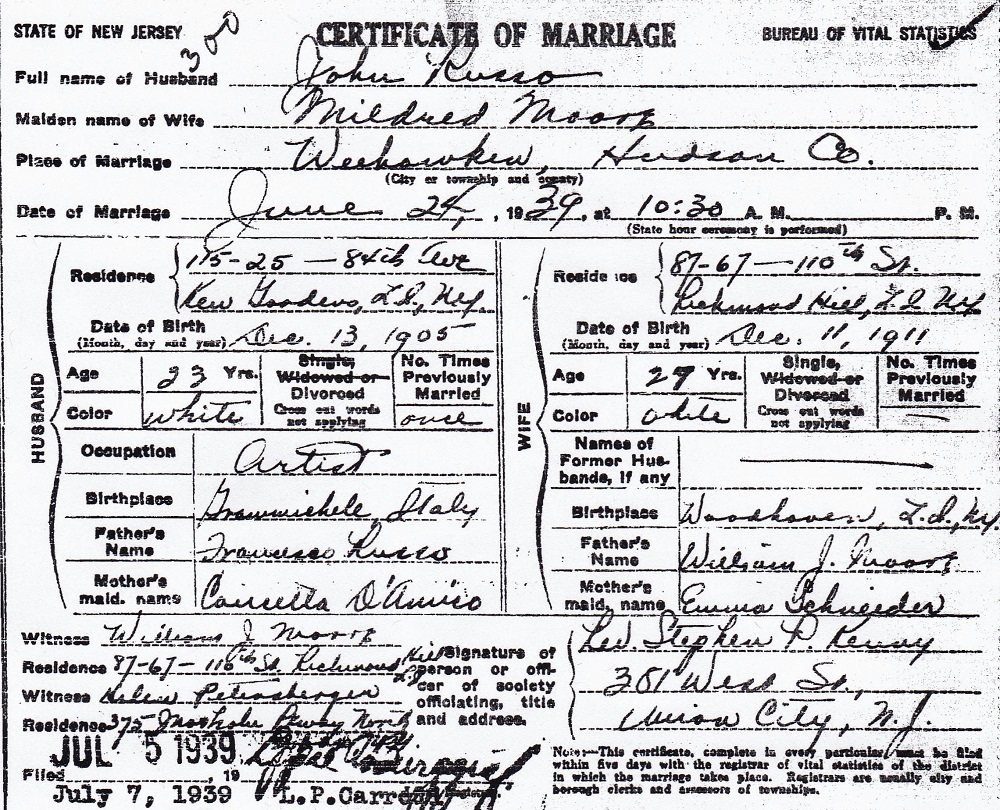 300
STATE OF NEW JERSEY CERTIFICATE OF MARRIAGE BUREAU OF VITAL STATISTICS
Full name of Husband John Russo
Maiden name of Wife Mildred
Place of Marriage Weehawken, Hudson Co.
(City or township and county)
Date of Marriage June 24, 1939, at 10:30 A. M. P. M.
(State hour ceremony is performed)
HUSBAND
Residence 115-25 — 84th Ave
Kew Gardens, L.I., N.Y.
Date of Birth Dec. 13, 1905
(Month, day and year)
Age 33 Yrs. Single, Widowed or Divorced No. Times Previously Married
Color white Cross out words not applying once
Occupation Artist
Birthplace Grammichele, Italy
Father's Name Francesco Russo
Mother's maid. name Concetta D'Amico
WIFE
Residence 87-67 — 110th St.
Richmond Hill, L.I. N.Y.
Date of Birth Dec. 11, 1911
(Month, day and year)
Age 27 Yrs. Single, Widowed or Divorced No. Times Previously Married
Color white Cross out words not applying —
Names of Former Husbands, if any
Birthplace Woodhaven, L.I., N.Y.
Father's Name William J.
Mother's maid. name Emma Schneider
Witness William J.
Residence 87-67-110th St, Richmond Hill L.I.
Witness Helen Petersberger
Residence 375 Mosholu Pkway North
Signature of person or officer of society officiating, title and address.
Rev. Stephen P. Kenny
381 West St.,
Union City, N.J.
JUL 5 1939
Filed , 19
July 7, 1939 L.P.
Note:—This certificate, complete in every particular, must be filed
within five days with the registrar of vital statistics of the district
in which the marriage takes place. Registrars are usually city and
borough clerks and assessors of townships.